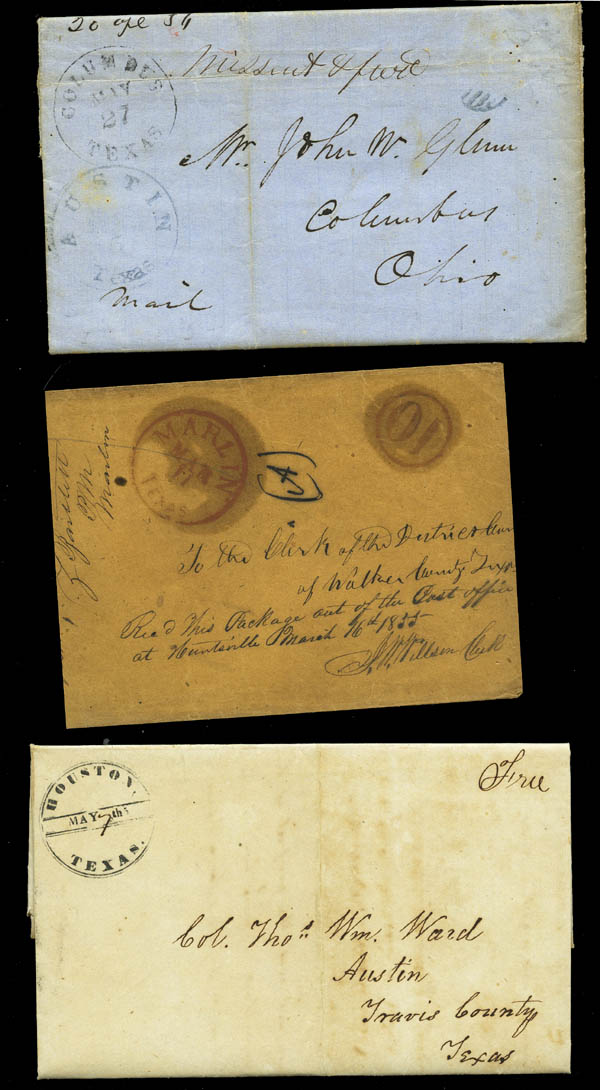 20 Ap 54
Missent & ford
COLUMBUS
MAY
27
TEXAS
Mr. John W. Glenn
AUSTIN
Columbus
Texas
Ohio
Mail
MARLIN
MAR
TEXAS
10
(A)
PM
Marlin
To the Clerk of the District
of Walker County Texas
Recd this Package out of the Post office
at Huntsville March 16th 1855
Willson Clerk
HOUSTON,
MAY 7th
TEXAS.
Free
Col. Thos. Wm. Ward
Austin
Travis County
Texas